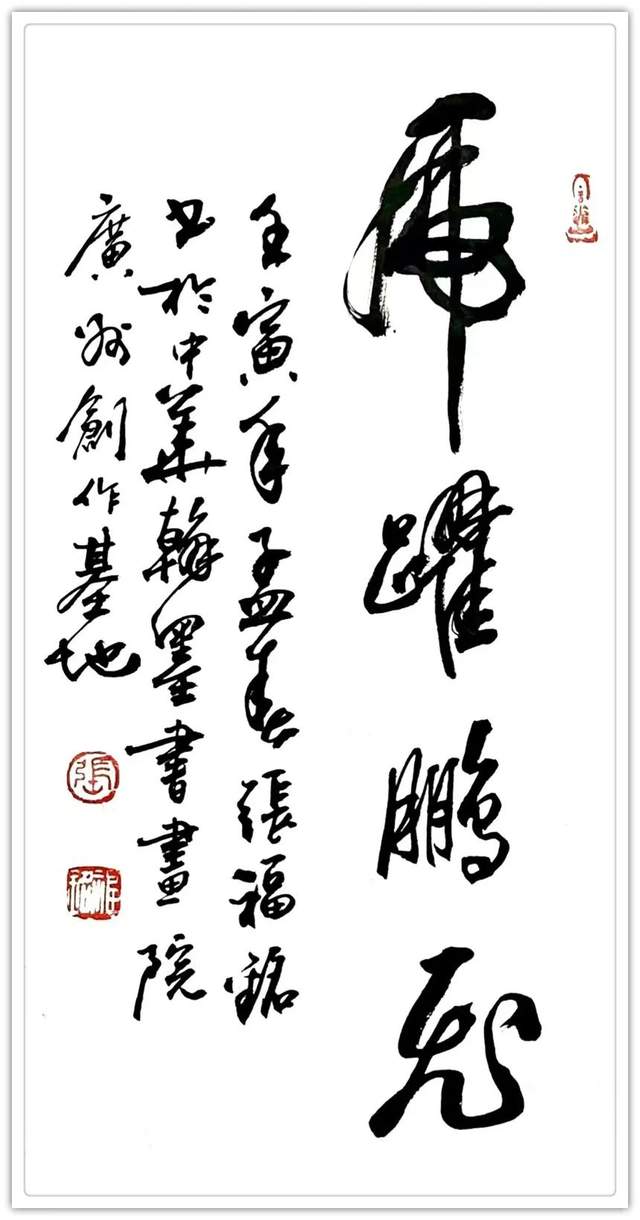 虎躍鵬飛
壬寅年孟春張福銘
书於中華翰墨書畫院
廣州創作基地
張